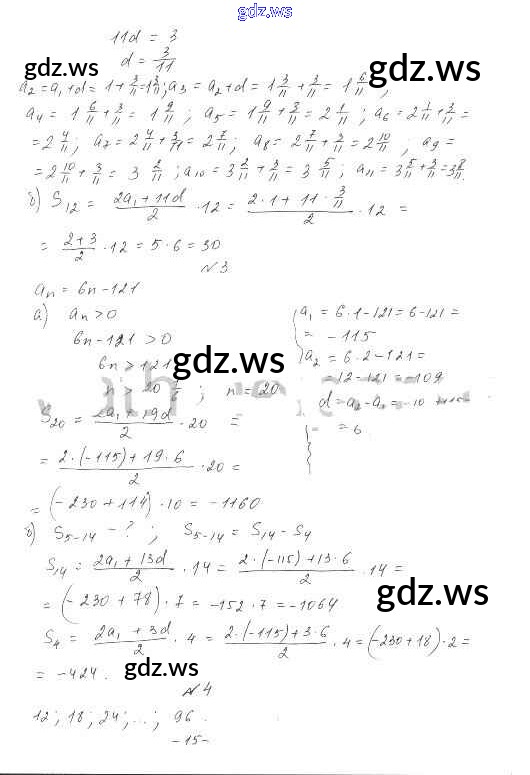 gdz.ws
11d = 3
d = 3/11
gdz.ws gdz.ws
a₂ = a₁ + d = 1 + 3/11 = 1 3/11; a₃ = a₂ + d = 1 3/11 + 3/11 = 1 6/11;
a₄ = 1 6/11 + 3/11 = 1 9/11; a₅ = 1 9/11 + 3/11 = 2 1/11; a₆ = 2 1/11 + 3/11 =
= 2 4/11; a₇ = 2 4/11 + 3/11 = 2 7/11; a₈ = 2 7/11 + 3/11 = 2 10/11; a₉ =
= 2 10/11 + 3/11 = 3 2/11; a₁₀ = 3 2/11 + 3/11 = 3 5/11; a₁₁ = 3 5/11 + 3/11 = 3 8/11.
б) S₁₂ = (2a₁ + 11d)/2 · 12 = (2·1 + 11 · 3/11)/2 · 12 =
= (2+3)/2 · 12 = 5 · 6 = 30
№3
aₙ = 6n - 121
а) aₙ > 0
6n - 121 > 0
6n > 121
n > 20 1/6; n = 20
a₁ = 6·1 - 121 = 6 - 121 =
= -115
a₂ = 6·2 - 121 =
= 12 - 121 = -109
d = a₂ - a₁ = -10
= 6
gdz.ws
S₂₀ = (2a₁ + 19d)/2 · 20 =
= (2·(-115) + 19·6)/2 · 20 =
= (-230 + 114) · 10 = -1160
б) S₅₋₁₄ - ?; S₅₋₁₄ = S₁₄ - S₄
S₁₄ = (2a₁ + 13d)/2 · 14 = (2·(-115) + 13·6)/2 · 14 =
= (-230 + 78) · 7 = -152 · 7 = -1064
gdz.ws
S₄ = (2a₁ + 3d)/2 · 4 = (2·(-115) + 3·6)/2 · 4 = (-230 + 18) · 2 =
= -424.
gdz.ws
№4
12; 18; 24; ...; 96.
-15-
gdz.ws gdz.ws